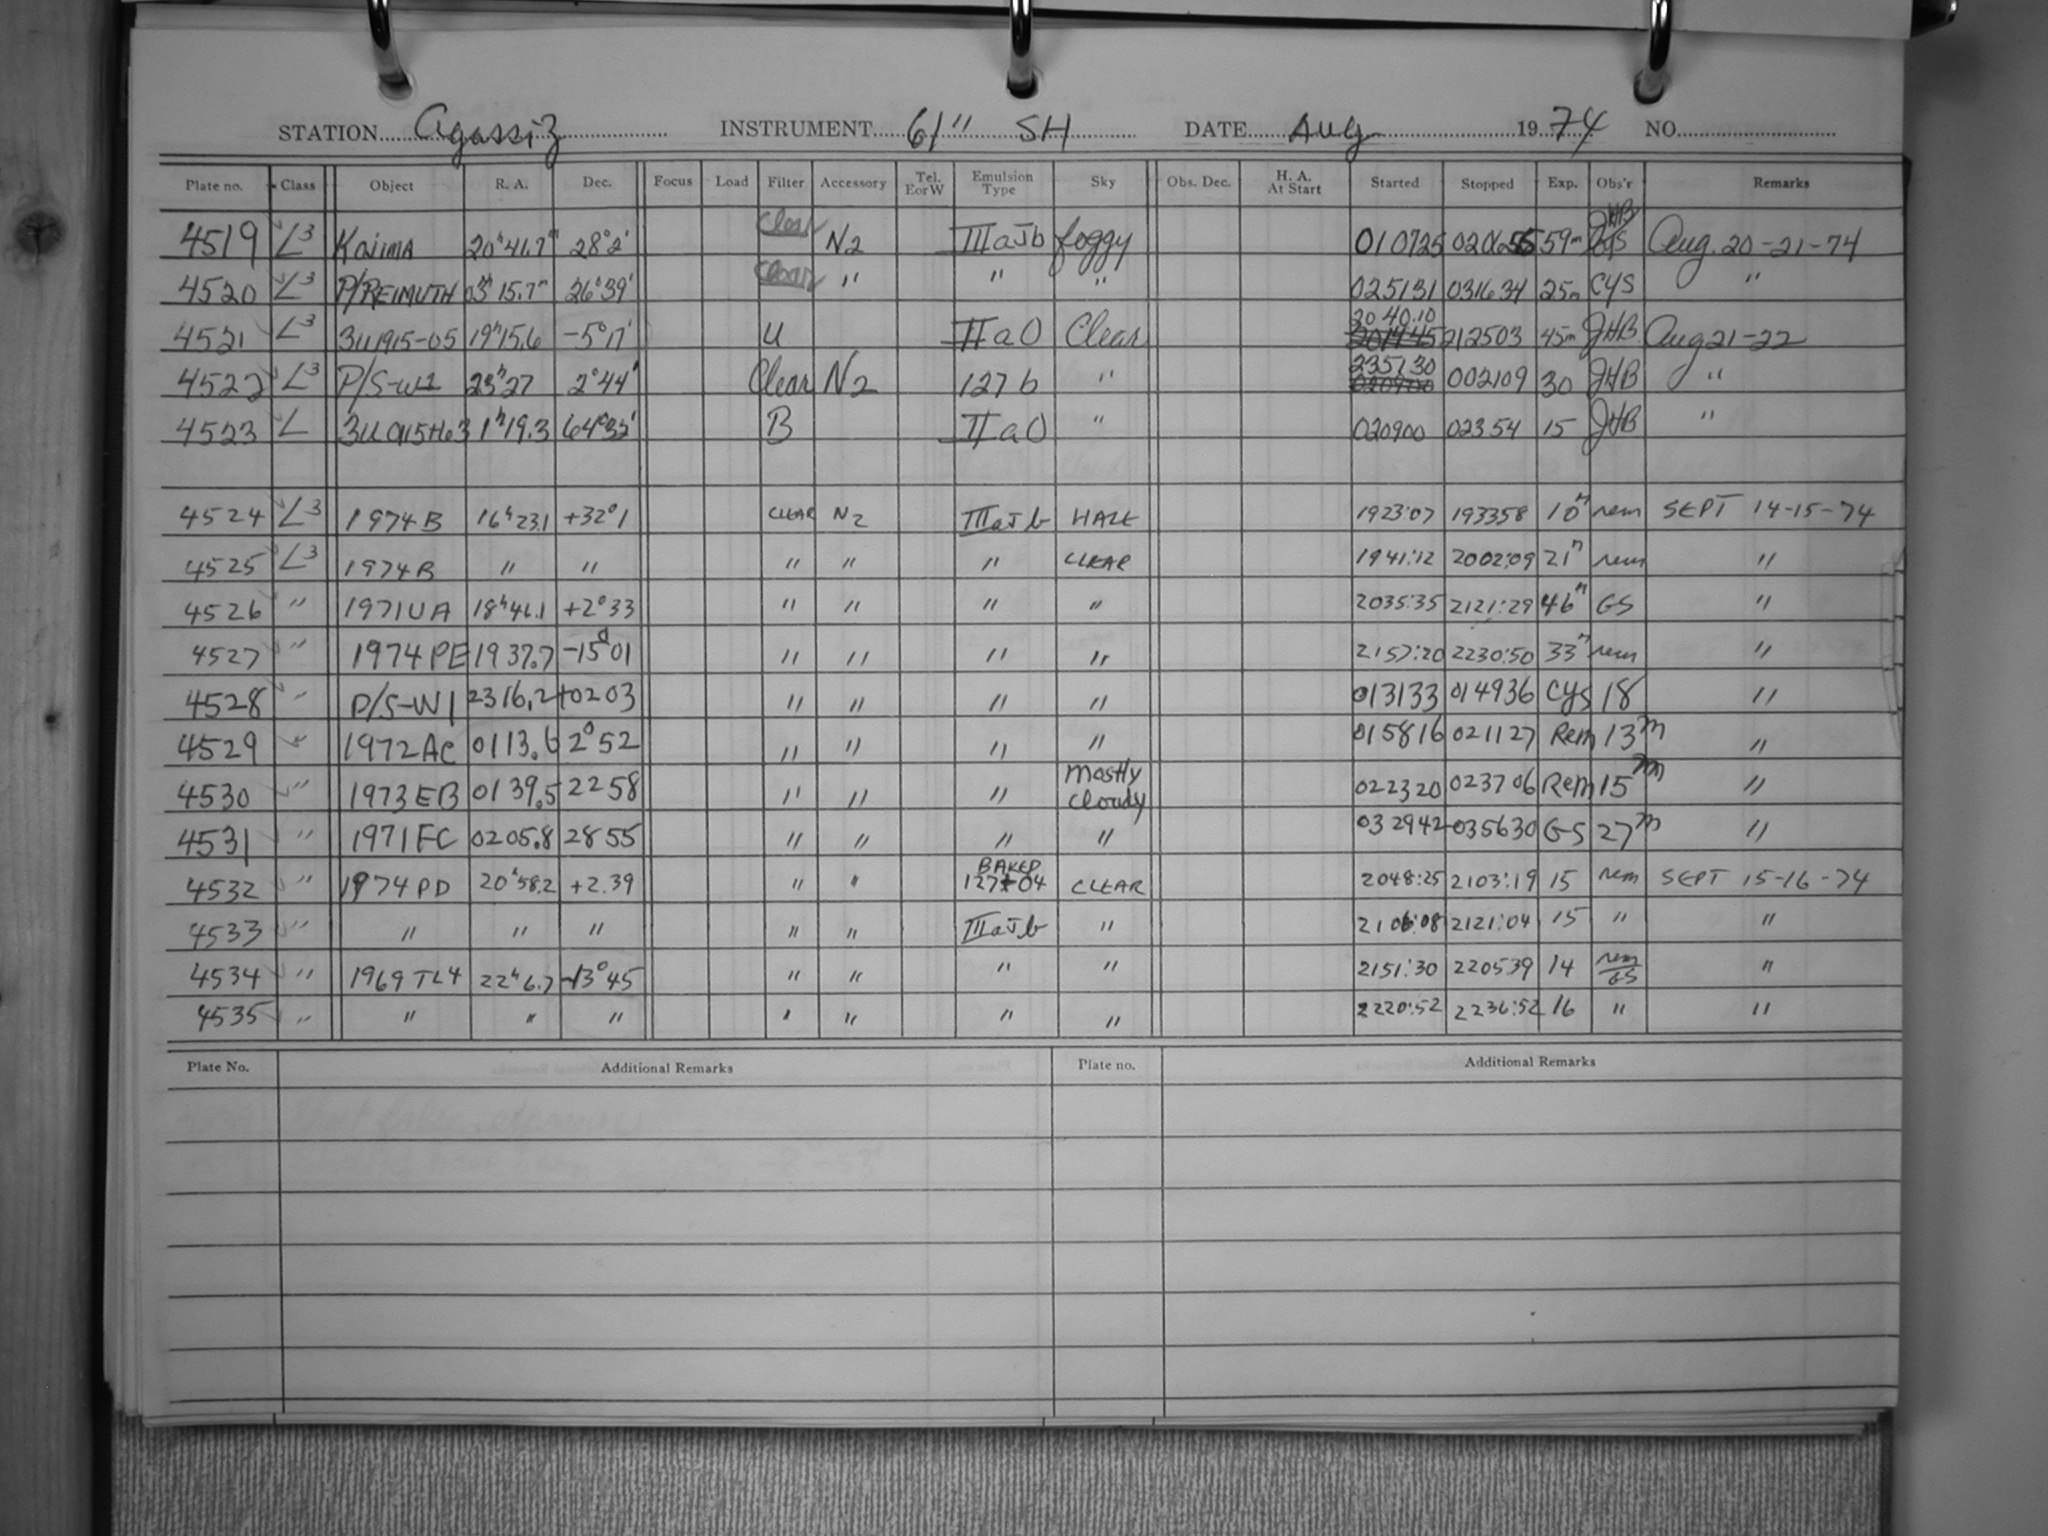 STATION Agassiz INSTRUMENT 61" SH DATE Aug 19 74 NO.
Plate no. Class Object R. A. Dec. Focus Load Filter Accessory Tel. E or W Emulsion Type Sky Obs. Dec. H. A. At Start Started Stopped Exp. Obs'r Remarks
4519 L3 Kojima 20h41.7m 28°2' Clear N2 IIIaJb foggy 010725 020655 59m JHB CYS Aug. 20-21-74
4520 L3 P/REIMUTH 03h15.7m 26°39' Clear " " " 025131 031634 25m CYS "
4521 L3 3U1915-05 19h15.6 -5°17' U IIaO Clear 20 40.10 212503 45m JHB Aug 21-22
4522 L3 P/S-W1 23h27 2°44' Clear N2 127b " 235130 002109 30 JHB "
4523 L 3U0115+63 1h19.3 64°35' B IIaO " 020900 02354 15 JHB "
4524 L3 1974B 16h23.1 +32°1 CLEAR N2 IIIaJb HAZE 1923:07 193358 10m rem SEPT 14-15-74
4525 L3 1974B " " " " " CLEAR 1941:12 2002:09 21m rem "
4526 " 1971UA 18h41.1 +2°33 " " " " 2035:35 2121:29 46m GS "
4527 " 1974PE 1937.7 -15°01 " " " " 2157:20 2230:50 33m rem "
4528 " P/S-W1 2316.2 +0203 " " " " 013133 014936 CYS 18 "
4529 " 1972AC 0113.6 2°52 " " " " 015816 021127 Rem 13m "
4530 " 1973EB 0139.5 2258 " " " mostly cloudy 022320 023706 Rem 15m "
4531 " 1971FC 0205.8 2855 " " " " 032942 035630 GS 27m "
4532 " 1974PD 20h58.2 +2.39 " " BAKED 127-04 CLEAR 2048:25 2103:19 15 rem SEPT 15-16-74
4533 " " " " " " IIIaJb " 2106:08 2121:04 15 " "
4534 " 1969TL4 22h6.7 -13°45 " " " " 2151:30 220539 14 rem/GS "
4535 " " " " " " " " 2220:52 2236:52 16 " "
Plate No. Additional Remarks Plate no. Additional Remarks